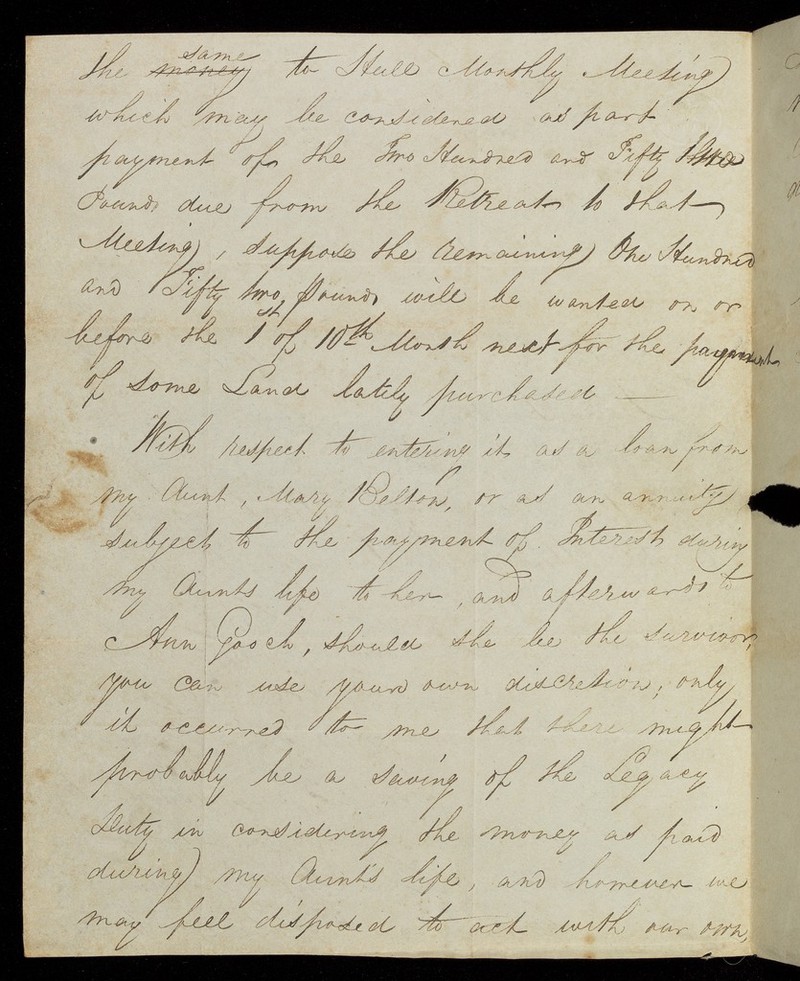 the ~~money~~ same to Hull Monthly Meeting
which may be considered as part
payment of the Two Hundred and Fifty ~~three~~
Pounds due from the Retreat to that
Meeting, suppose the remaining One Hundred
and Fifty two Pounds will be wanted on or
before the 1st of 10th Month next for the payment
of some Land lately purchased —
With respect to entering it as a loan from
my Aunt, Mary Belton, or as an annuity
subject to the payment of Interest during
my Aunts life to her, and afterwards to
Ann Gooch, should she be the survivor,
you can use your own discretion; only
it occurred to me that there might
probably be a saving of the Legacy
Duty in considering the money as paid
during my Aunt's life, and however we
may feel disposed to act with our own,